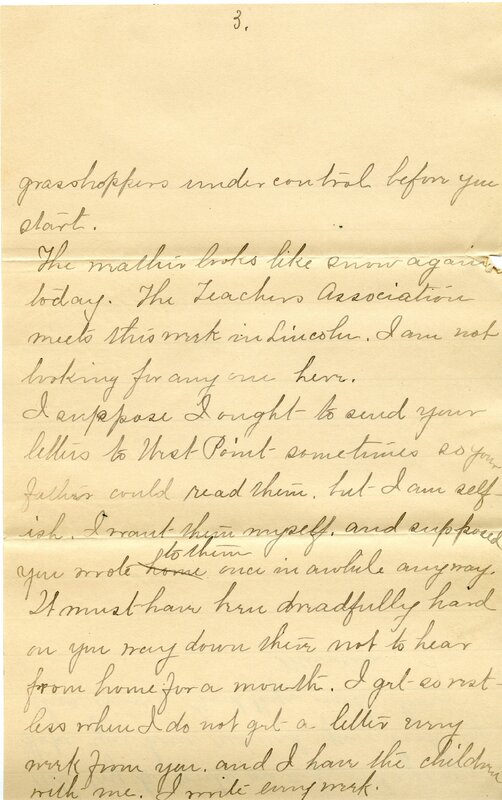 3.
grasshoppers under control before you
start.
The weather looks like snow again
today. The Teachers Association
meets this week in Lincoln. I am not
looking for any one here.
I suppose I ought to send your
letters to West Point sometimes so your
father could read them, but I am self
ish. I want them myself, and supposed
to them
you wrote home once in awhile anyway.
It must have been dreadfully hard
on you way down there not to hear
from home for a month. I get so rest-
less when I do not get a letter every
week from you, and I have the children
with me. I write every week.